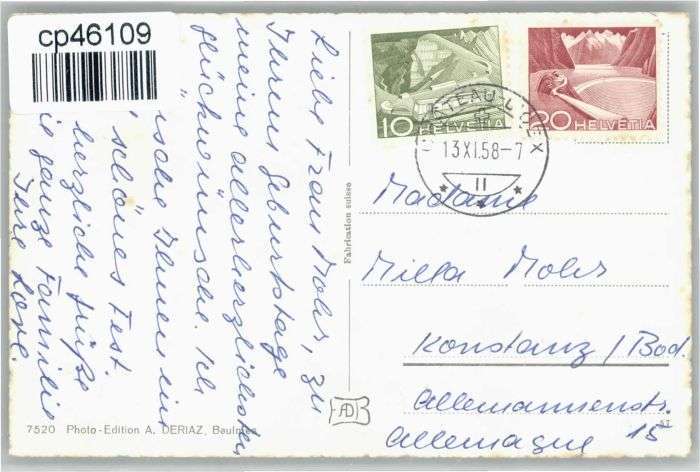 cp46109
Liebe Frau Mohr, zu
Ihrem Geburtstage
meine allerherzlichsten
Glückwünsche. Ich
sche Ihnen ein
schönes Fest.
herzliche Grüße
ie ganze Familie
Ihre
10 HELVETIA
20 HELVETIA
CHÂTEAU-D'OEX
13.XI.58-7
II
Fabrication suisse
Madame
Milla Mohr
Konstanz/Bod.
Allemannenstr.
15
Allemagne
7520 Photo-Edition A. DERIAZ, Baulmes
AD